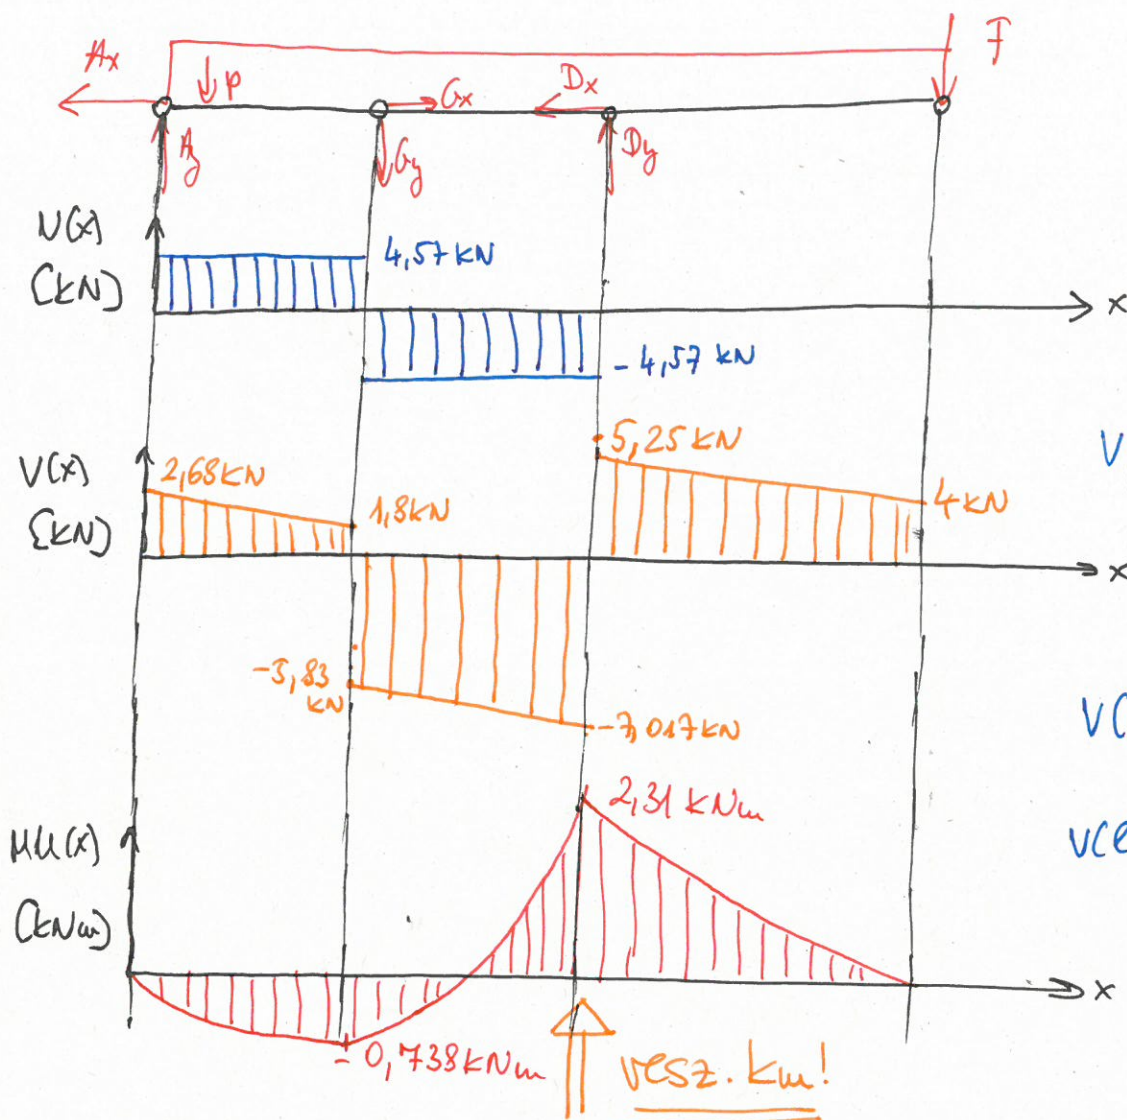 Ax
p
Gx
Dx
F
Ay
Gy
Dy
N(x)
(kN)
4,57 kN
x
- 4,57 kN
V(x)
(kN)
2,68 kN
1,8 kN
5,25 kN
4 kN
V
x
-3,83
kN
-7,017 kN
V(
V(e
Mh(x)
(kNm)
2,31 kNm
- 0,738 kNm
x
vesz. km!